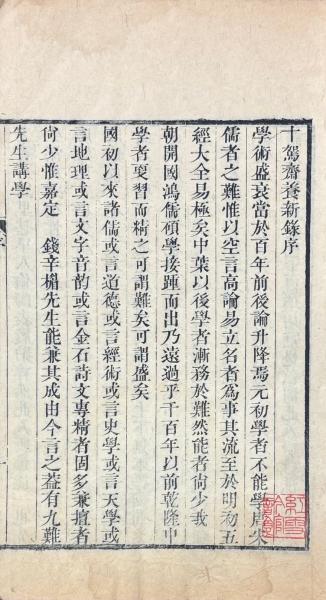 十駕齋養新錄序
學術盛衰當於百年前後論升降焉元初學者不能學唐宋
儒者之難惟以空言高論易立名者爲事其流至於明初五
經大全易極矣中葉以後學者漸務於難然能者尙少我
朝開國鴻儒碩學接踵而出乃遠過乎千百年以前乾隆中
學者更習而精之可謂難矣可謂盛矣
國初以來諸儒或言道德或言經術或言史學或言天學或
言地理或言文字音韵或言金石詩文專精者固多兼擅者
尙少惟嘉定 錢辛楣先生能兼其成由今言之葢有九難
先生講學